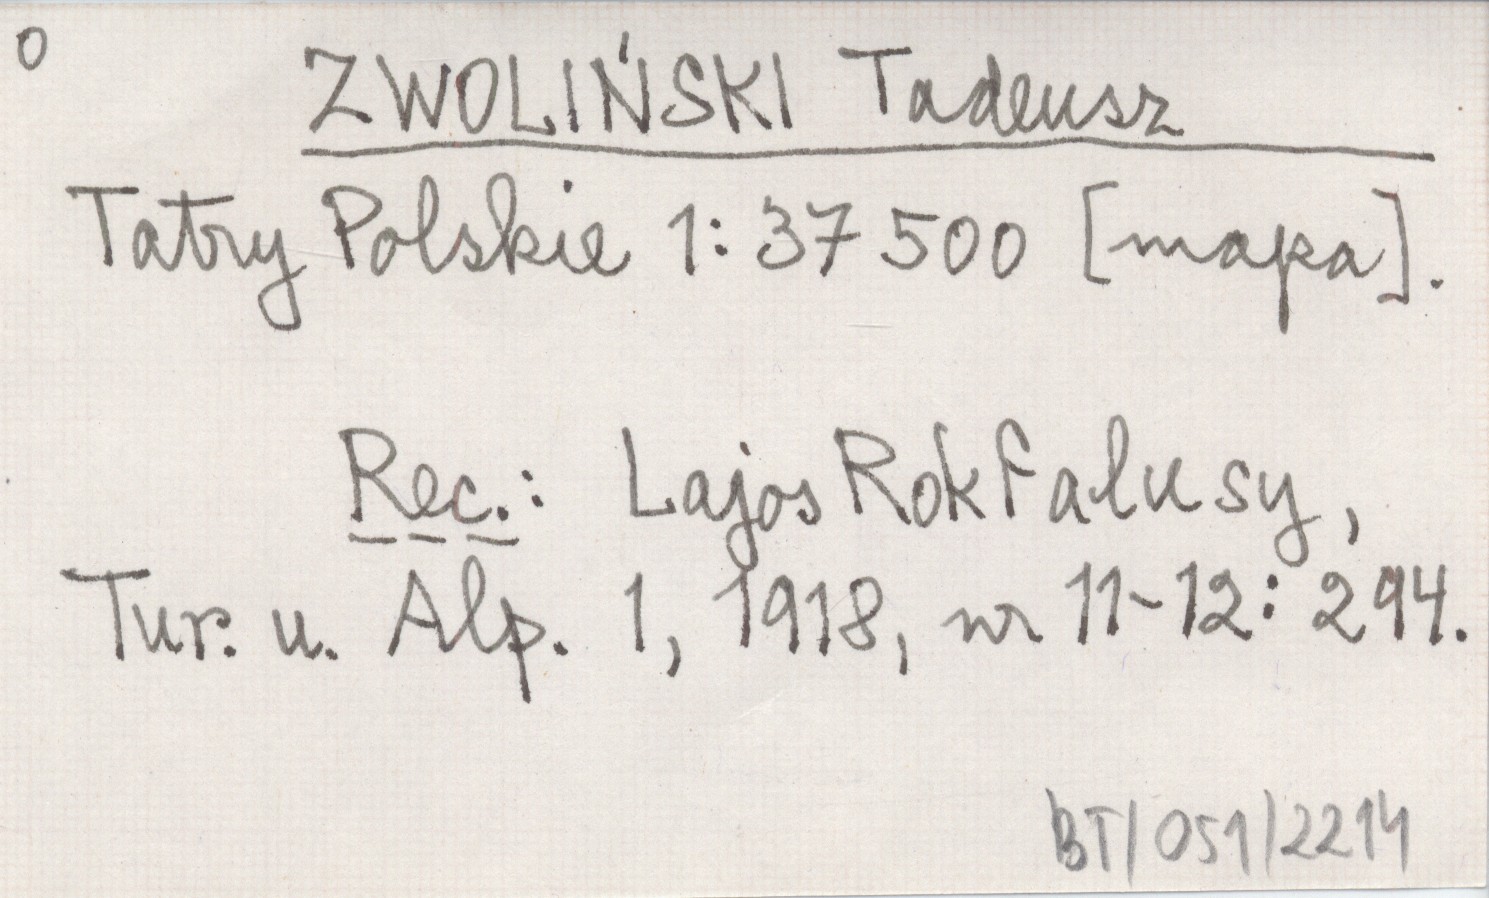 0
ZWOLIŃSKI Tadeusz
Tatry Polskie 1:37 500 [mapa].
Rec.: Lajos Rokfalusy,
Tur. u. Alp. 1, 1918, nr 11-12: 294.
BT/051/2214